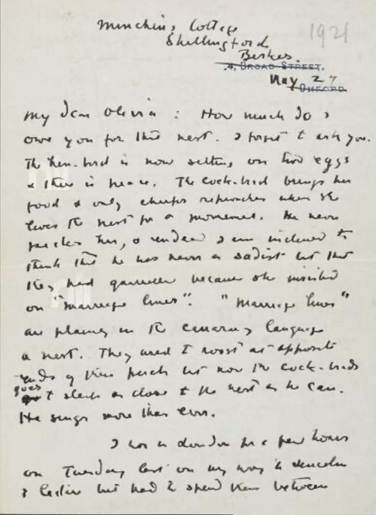 Minchins Cottage
Shellingford
Berks.
1921
4, BROAD STREET,
May 27
OXFORD
My dear Olivia : How much do I
owe you for that nest. I forgot to ask you.
The hen-bird is now sitting on two eggs
& there is peace. The cock-bird brings her
food & only chirps reproaches when she
leaves the nest for a moment. He never
pecks her, & indeed I am inclined to
think that he was never a sadist but that
they had quarrelled because she insisted
on "marriage lines". "Marriage lines"
are plainly in the canary language
a nest. They used to roost at opposite
ends of their perch but now the cock-bird
goes to sleep as close to the nest as he can.
He sings more than ever.
I was in London for a few hours
on Tuesday last on my way to Lincoln
& had to spend them between